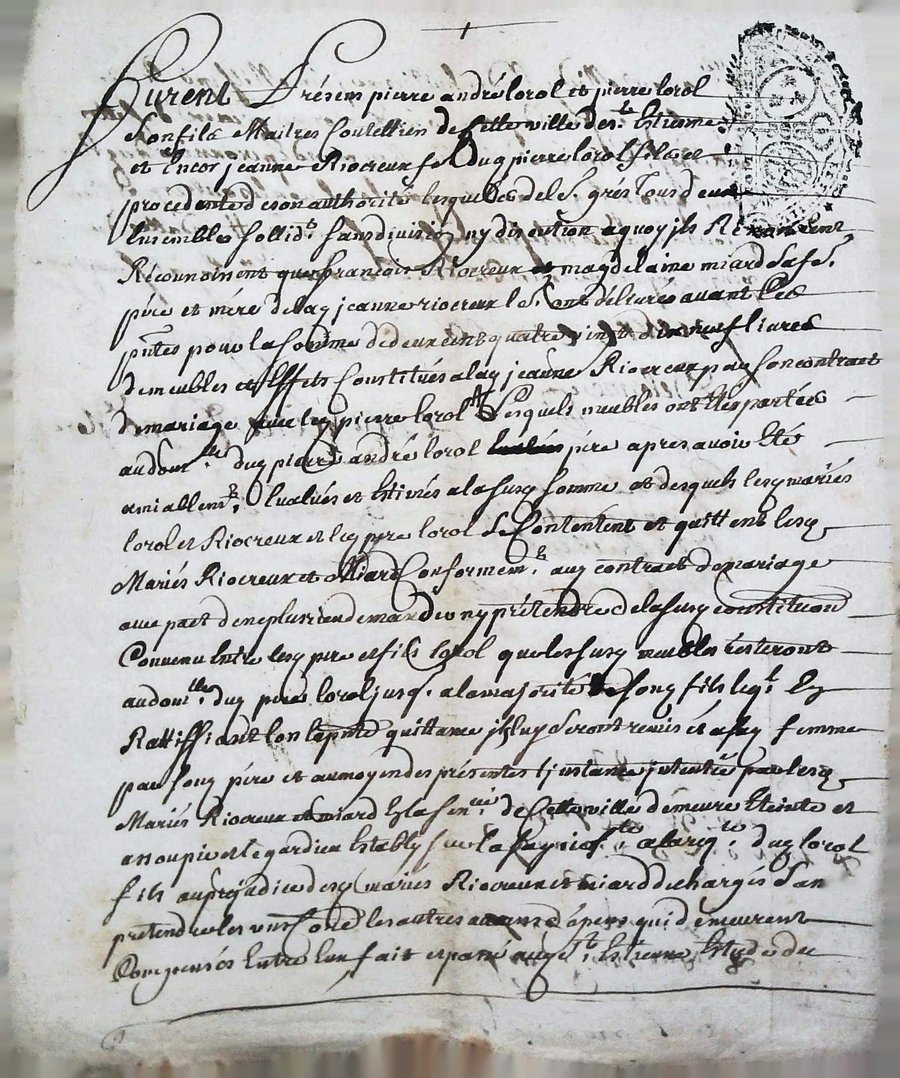 Furent Présens pierre andré lorol et pierre lorol
son fils Maitres Coutelliers de Cette ville de st. Estienne
et Encor jeanne Riocreux fe. dud pierre lorol fils et
procedente de son authorité lesquels de Ls. gres tous deux
Ensembles sollidt. sans division ny discution a quoy ils Renoncent
Reconnoissent que françois Riocreux et magdelaine miard sa fe.
père et mère de lad jeanne riocreux Le. ont délivrés avant Les
pntes pour la somme de deux cent quatre vingt dix neuf livres
de meubles et Effets Constitués a lad jeanne Riocreux par son contract
de mariage avec led pierre lorol Lesquels meubles ont étés portés
au domlle dud pierre andré lorol père apres avoir Eté
amiablemt. Evalués et Estimés a la susd somme et desquels lesd mariés
lorol et Riocreux et led père lorol se Contentent et quittent lesd
Mariés Riocreux et Miard Conformemt. aud contract de mariage
avec pact de ne plus rien demander ny prétendre de la susd constitution
Convenu Entre lesd père et fils lorol que les susd meubles resteront
au domlle dud père lorol jusq. a la majorité de sond fils leql. En
Rattiffiant lors la pnte quittance ils luy seront remis et a sad femme
par sond père et au moyen des présentes l'instance intentée par lesd
Mariés Riocreux et miard En la senée de Cette ville demeure Eteinte et
assoupie et le gardien Estably sur la saisie a la req. dud lorol
fils au préjudice desd mariés Riocreux et miard dechargés sans
pretendre les uns Contre les autres aucuns dépens qui demeurent
Compensés Entre Eux fait et passé aud st. Estienne Etude du